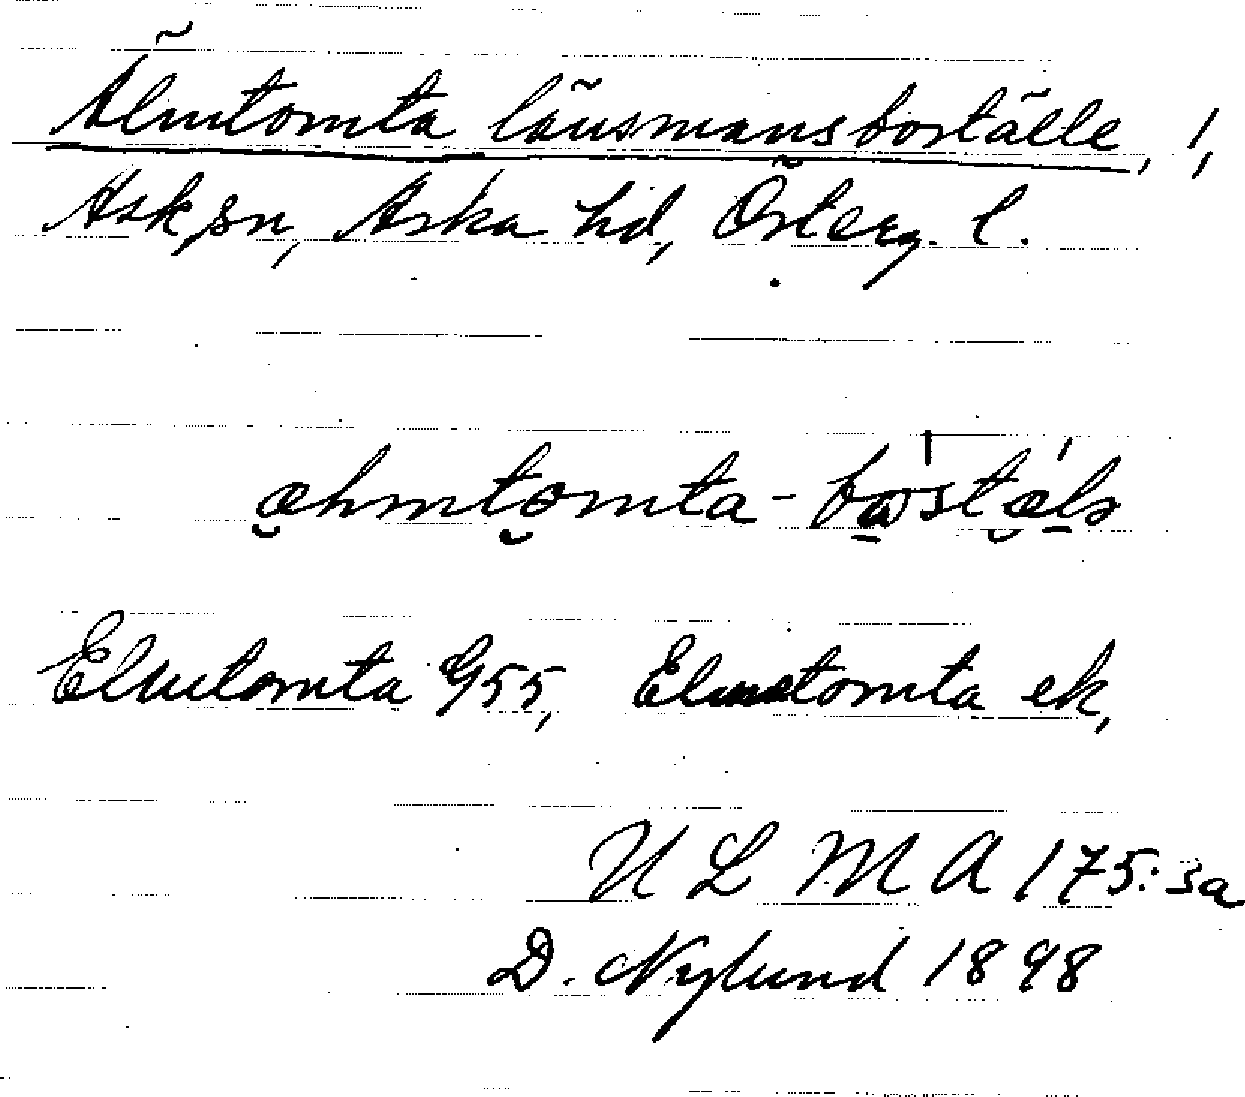 Älmtomta länsmansboställe, 1,
Ask sn, Aska hd, Österg. l.
Elmtomta G55, Elmtomta ek,
ULMA 175:3a
D. Nylund 1898